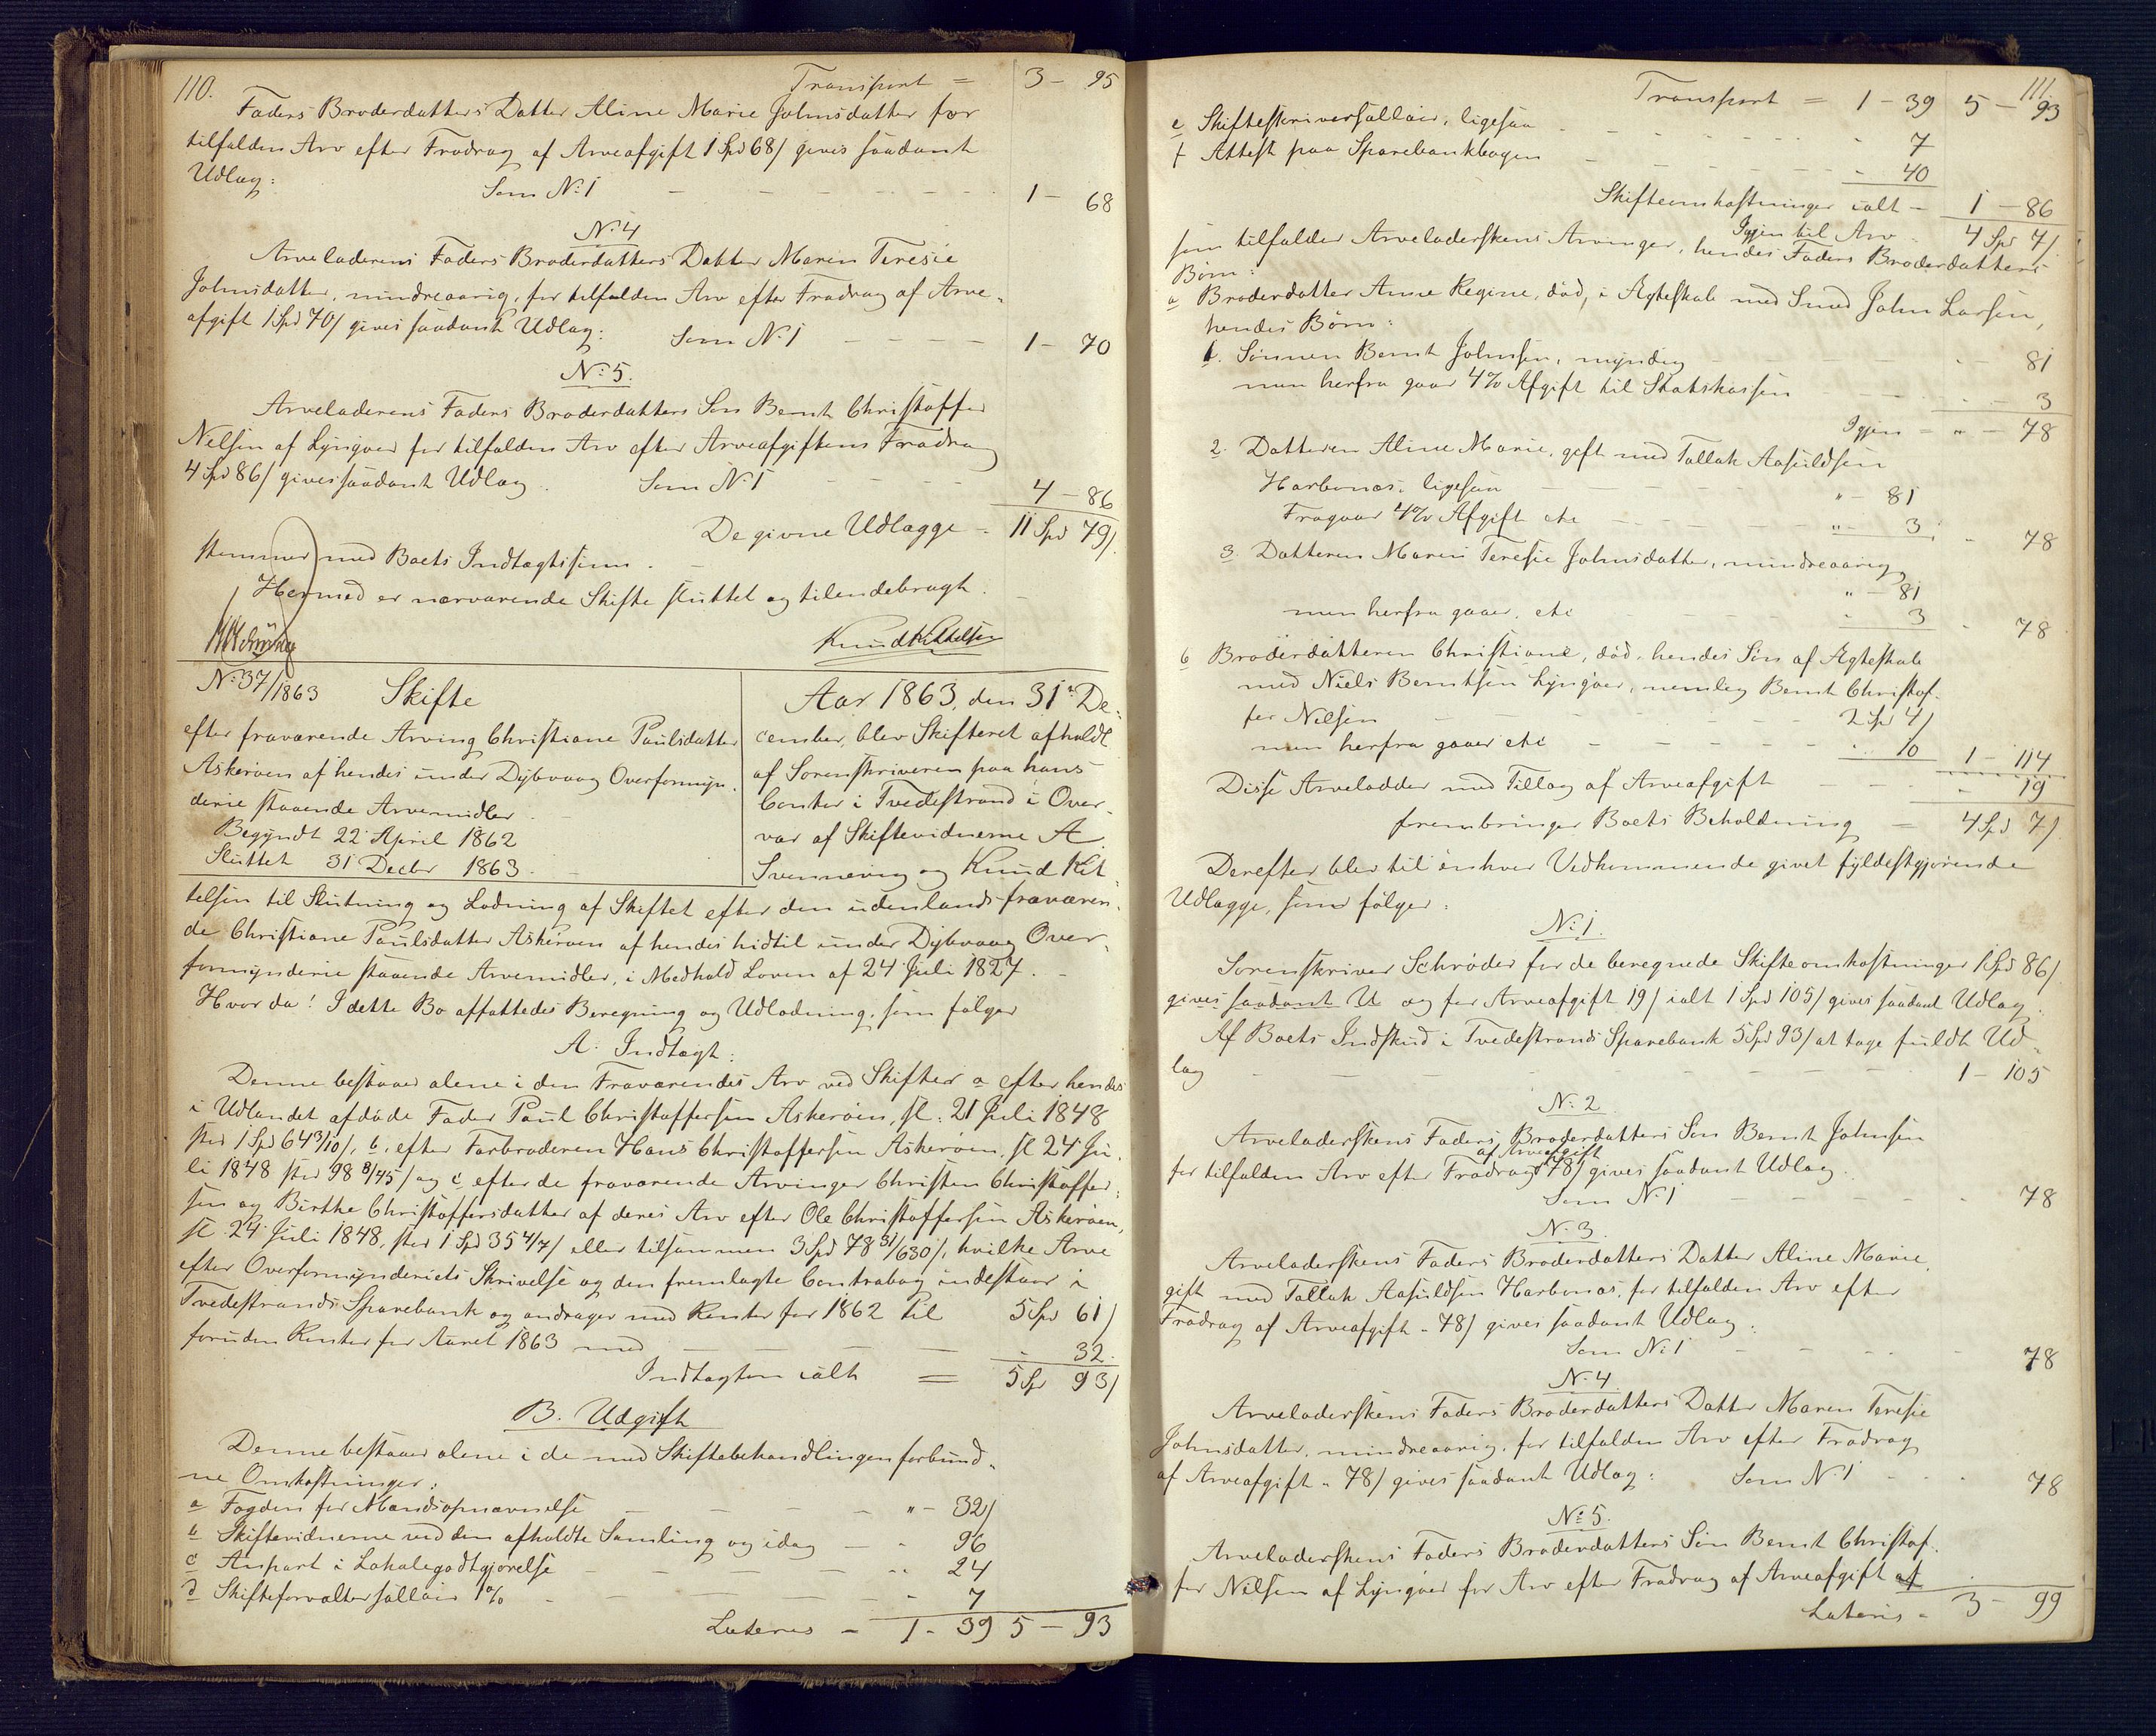 110.
Transport = 3 - 95
Faders Broderdatters Datter Aline Marie Johnsdatter for
tilfalden Arv efter Fradrag af Arveafgift 1 Spd 68/ gives saadant
Udlæg:
Som No 1 - - - - - - 1 - 68
No 4
Arveladerens Faders Broderdatters Datter Maren Teresie
Johnsdatter, mindreaarig, for tilfalden Arv efter Fradrag af Arve-
afgift 1 Spd 70/ gives saadant Udlæg: Som No 1 - - - - 1 - 70
No 5.
Arveladerens Faders Broderdatters Søn Bernt Christoffer
Nelsen af Lyngøer for tilfalden Arv efter Arveafgiftens Fradrag
4 Spd 86/ gives saadant Udlæg. Som No 1 - - - - 4 - 86
De givne Udlægge - 11 Spd 79/.
stemmer med Boets Indtægtssum. -
Hermed er nærværende Skifte sluttet og tilendebragt.
Knud Kittelsen
No 37/1863 Skifte
efter fraværende Arving Christiane Paulsdatter
Askerøen af hendes under Dybvaag Overformyn-
derie staaende Arvemidler.
Begyndt 22 April 1862
Sluttet 31 Decbr 1863.
Aar 1863, den 31te De-
cember, blev Skifteret afholdt
af Sorenskriveren paa hans
Contor i Tvedestrand i Over-
vær af Skiftevidnerne A.
Svenneving og Knud Kit-
telsen til Slutning og Lodning af Skiftet efter den udenlands fraværen-
de Christiane Paulsdatter Askerøen af hendes hidtil under Dybvaag Over-
formynderie staaende Arvemidler, i Medhold Loven af 24 Juli 1827. -
Hvor da! I dette Bo affattedes Beregning og Udlodning, som følger
A. Indtægt:
Denne bestaaer alene i den Fraværendes Arv ved Skifter a efter hendes
i Udlandet afdøde Fader Paul Christoffersen Askerøen, sl. 21 Juli 1848
stor 1 Spd 64 3/10/, b, efter Farbroderen Hans Christoffersen Askerøen, sl 24 Ju-
li 1848 stor 98 8/45/ og c, efter de fraværende Arvinger Christen Christoffer-
sen og Birthe Christoffersdatter af deres Arv efter Ole Christoffersen Askerøen,
sl. 24 Juli 1848, stor 1 Spd 35 4/7/ eller tilsammen 3 Spd 78 31/630/, hvilke Arve
efter Overformynderiets Skrivelse og den fremlagte Contrabog indestaar i
Tvedestrands Sparebank og andrager med Renter for 1862 til 5 Spd 61/
foruden Renter for Aaret 1863 med - - - - - 32.
Indtægten ialt = 5 Spd 93/
B. Udgift
Denne bestaaer alene i de med Skiftebehandlingen forbund-
ne Omkostninger:
a Fogden for Mandsopnævnelse - - - " - 32/
b Skiftevidnerne ved den afholdte Samling og idag - - 96
c Anpart i Lokalegodtgjørelse - - - - 24
d Skifteforvaltersallair 1% - - - - 7
Lateris - 1 - 39 5 - 93
111.
Transport = 1 - 39 5 - 93
e Skifteskriversallair, ligesaa - - - - 7
f Attest paa Sparebankbogen - - - - 40
Skifteomkostninger ialt - 1 - 86
Igjen til Arv - 4 Spd 7/
som tilfalder Arveladerskens Arvinger, hendes Faders Broderdatters
Børn:
a Broderdatter Anne Regine, død, i Ægteskab med Smed John Larsen,
hendes Børn:
1. Sønnen Bernt Johnsen, myndig - - - - 81
men herfra gaar 4% Afgift til Statskassen - - - 3
Igjen - " - 78
2. Datteren Aline Marie, gift med Tallak Aasuldsen
Harbonæs, ligesaa - - - " - 81
Fragaar 4% Afgift etc - - - " - 3 - 78
3. Datteren Maren Teresie Johnsdatter, mindreaarig,
" - 81
men herfra gaaer, etc - - - 3 - 78
b Broderdatteren Christiane, død, hendes Søn af Ægteskab
med Niels Berntsen Lyngøer, nemlig Bernt Christof-
fer Nelsen - - - - 2 Spd 4/
men herfra gaaer etc - - - - 10 1 - 114
Disse Arvelodder med Tillæg af Arveafgift - - - 19
frembringer Boets Beholdning - 4 Spd 7/.
Derefter blev til enhver Vedkommende givet fyldestgjørende
Udlægge, som følger:
No 1.
Sorenskriver Schrøder for de beregnede Skifteomkostninger 1 Spd 86/
gives saadant U og for Arveafgift 19/ ialt 1 Spd 105/ gives saadant Udlæg.
Af Boets Indskud i Tvedestrands Sparebank 5 Spd 93/ at tage fuldt Ud-
læg - - - - - - 1 - 105
No 2
Arveladerskens Faders Broderdatters Søn Bernt Johnsen
af Arveafgift
for tilfalden Arv efter Fradrag 78/ gives saadant Udlæg.
Som No 1 - - - - 78
No 3.
Arveladerskens Faders Broderdatters Datter Aline Marie,
gift med Tallak Aasuldsen Harbonæs, for tilfalden Arv efter
Fradrag af Arveafgift - 78/ gives saadant Udlæg:
Som No 1 - - - - 78
No 4
Arveladerskens Faders Broderdatters Datter Maren Teresie
Johnsdatter, mindreaarig, for tilfalden Arv efter Fradrag
af Arveafgift " 78/ gives saadant Udlæg: Som No 1 - - - 78
No 5.
Arveladerskens Faders Broderdatters Søn Bernt Christof-
fer Nilsen af Lyngøer for Arv efter Fradrag af Arveafgift af
Lateris - 3 - 99